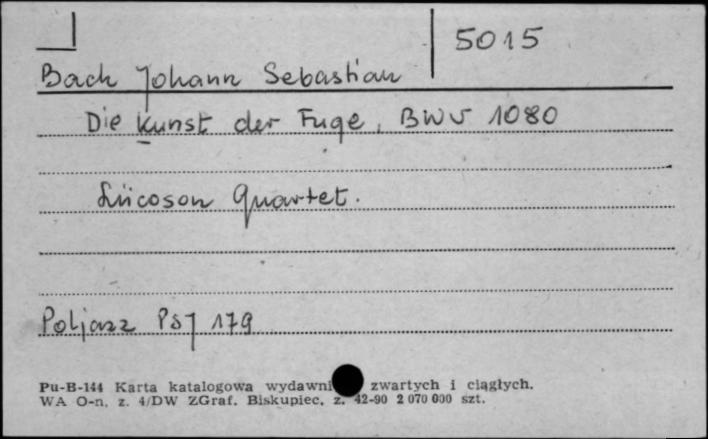 5015
Bach Johann Sebastian
Die Kunst der Fuge, BWV 1080
Quartet.
Poljazz PSJ 179
Pu-B-144 Karta katalogowa wydawni zwartych i ciągłych.
WA O-n. z. 4/DW ZGraf. Biskupiec, z. 42-90 2 070 000 szt.